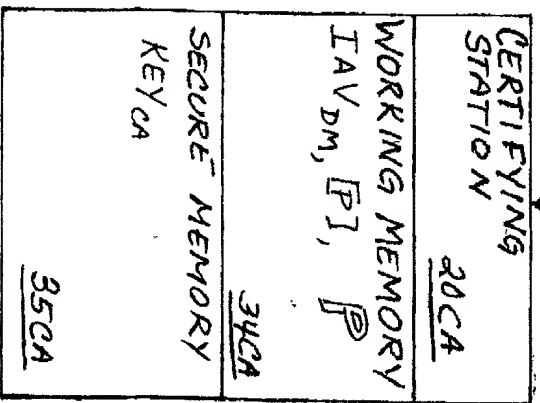 CERTIFYING
STATION
20CA
WORKING MEMORY
IAV DM, [P], ℙ
34CA
SECURE MEMORY
KEY CA
35CA